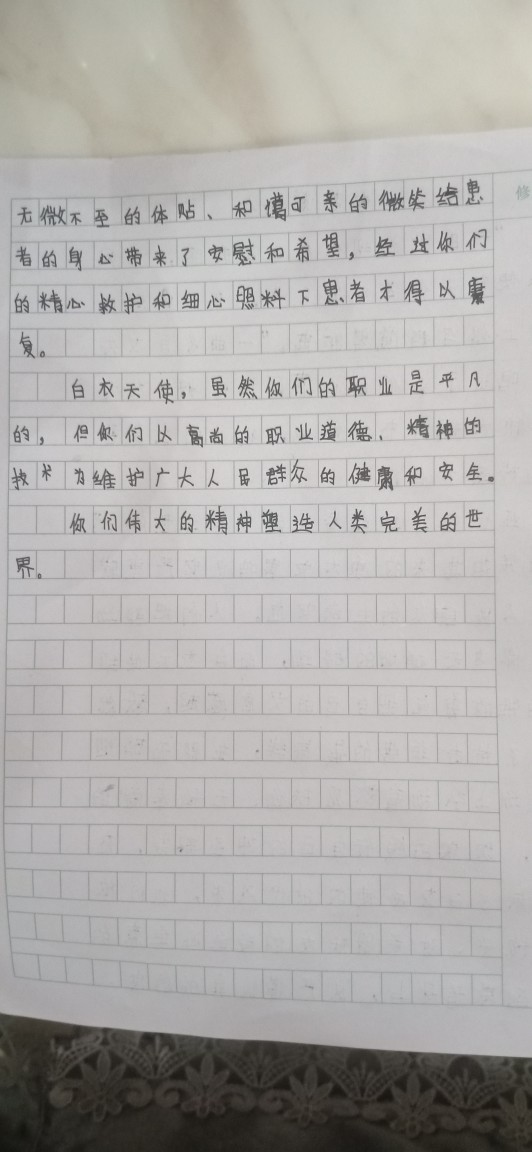 无微不至的体贴、和蔼可亲的微笑给患
者的身心带来了安慰和希望，经过你们
的精心救护和细心照料下患者才得以康
复。
白衣天使，虽然你们的职业是平凡
的，但你们以高尚的职业道德、精神的
技术为维护广大人民群众的健康和安全。
你们伟大的精神塑造人类完美的世
界。
修